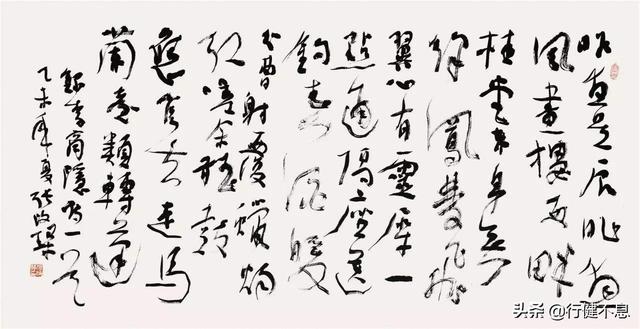 昨夜星辰昨夜
風畫樓西畔
桂堂東身無
綵鳳雙飛
翼心有靈犀一
點通隔座送
鈎春酒暖
分曹射覆蠟灯
紅嗟余聽鼓
應官去走馬
蘭臺類轉蓬
錄李商隱詩一首
乙未年夏張改琴
头条 @行健不息